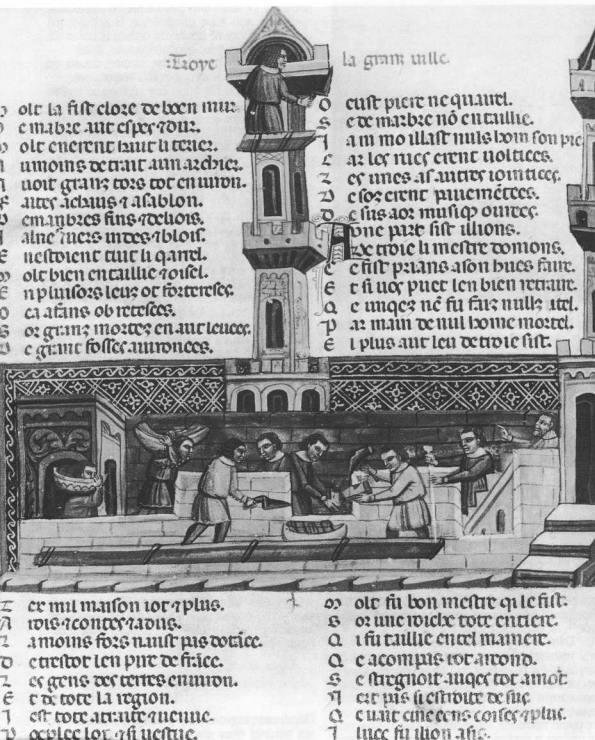 Troye la grant ville
olt la fist clore de boen mur
e mabre aut espes ⁊ dur.
olt enerent haut li terier.
umoins de trait aun archier.
uoit granz tors tot enuiron.
aites achaus ⁊ asablon.
emanbres fins ⁊ deliois.
alne ⁊ uers indes ⁊ blois.
nestoient tuit li qarrel.
olt bien entaillie ⁊ oisel.
n pluisors leus ot forteresces.
or granz mortes en aut leuees.
e grant fosses auironees.
D eust piere ne quarrel.
S e de marbre nō entaillie.
I a ni moillast nuls hom son pie
C ar les rues erent uoltices.
Z es unes as autres iointices.
D esoz erent pauemētees.
D esus aor musiq̄ ourees.
A one part fist ilions.
De troie li mestre domions.
C e fist prians a son hues faire.
E t si uos puet len bien retraire.
Q e unqes nē fu faiz nulz itel.
P ar main de nul home mortel.
E l plus aut leu de troie sist.
ex mil maison i ot ⁊ plus.
A rois ⁊ contes ⁊ adus.
amoins fors naust pas dotāce.
D e trestot len pire de frāce.
Z es gens des terres enuiron.
E t de tote la region.
I est tote atraite ⁊ uenue.
M olt fu bon mestre qi le fist.
S or une roiche tote entiere.
Q i fu taillie en tel maniere.
Q e acompas tot aroond.
S e stregnoit auqes tot amōt.
ert pas si estroite desus.
Q e uait cinc cens toises ⁊ plus.
I luec fu ilion asis.